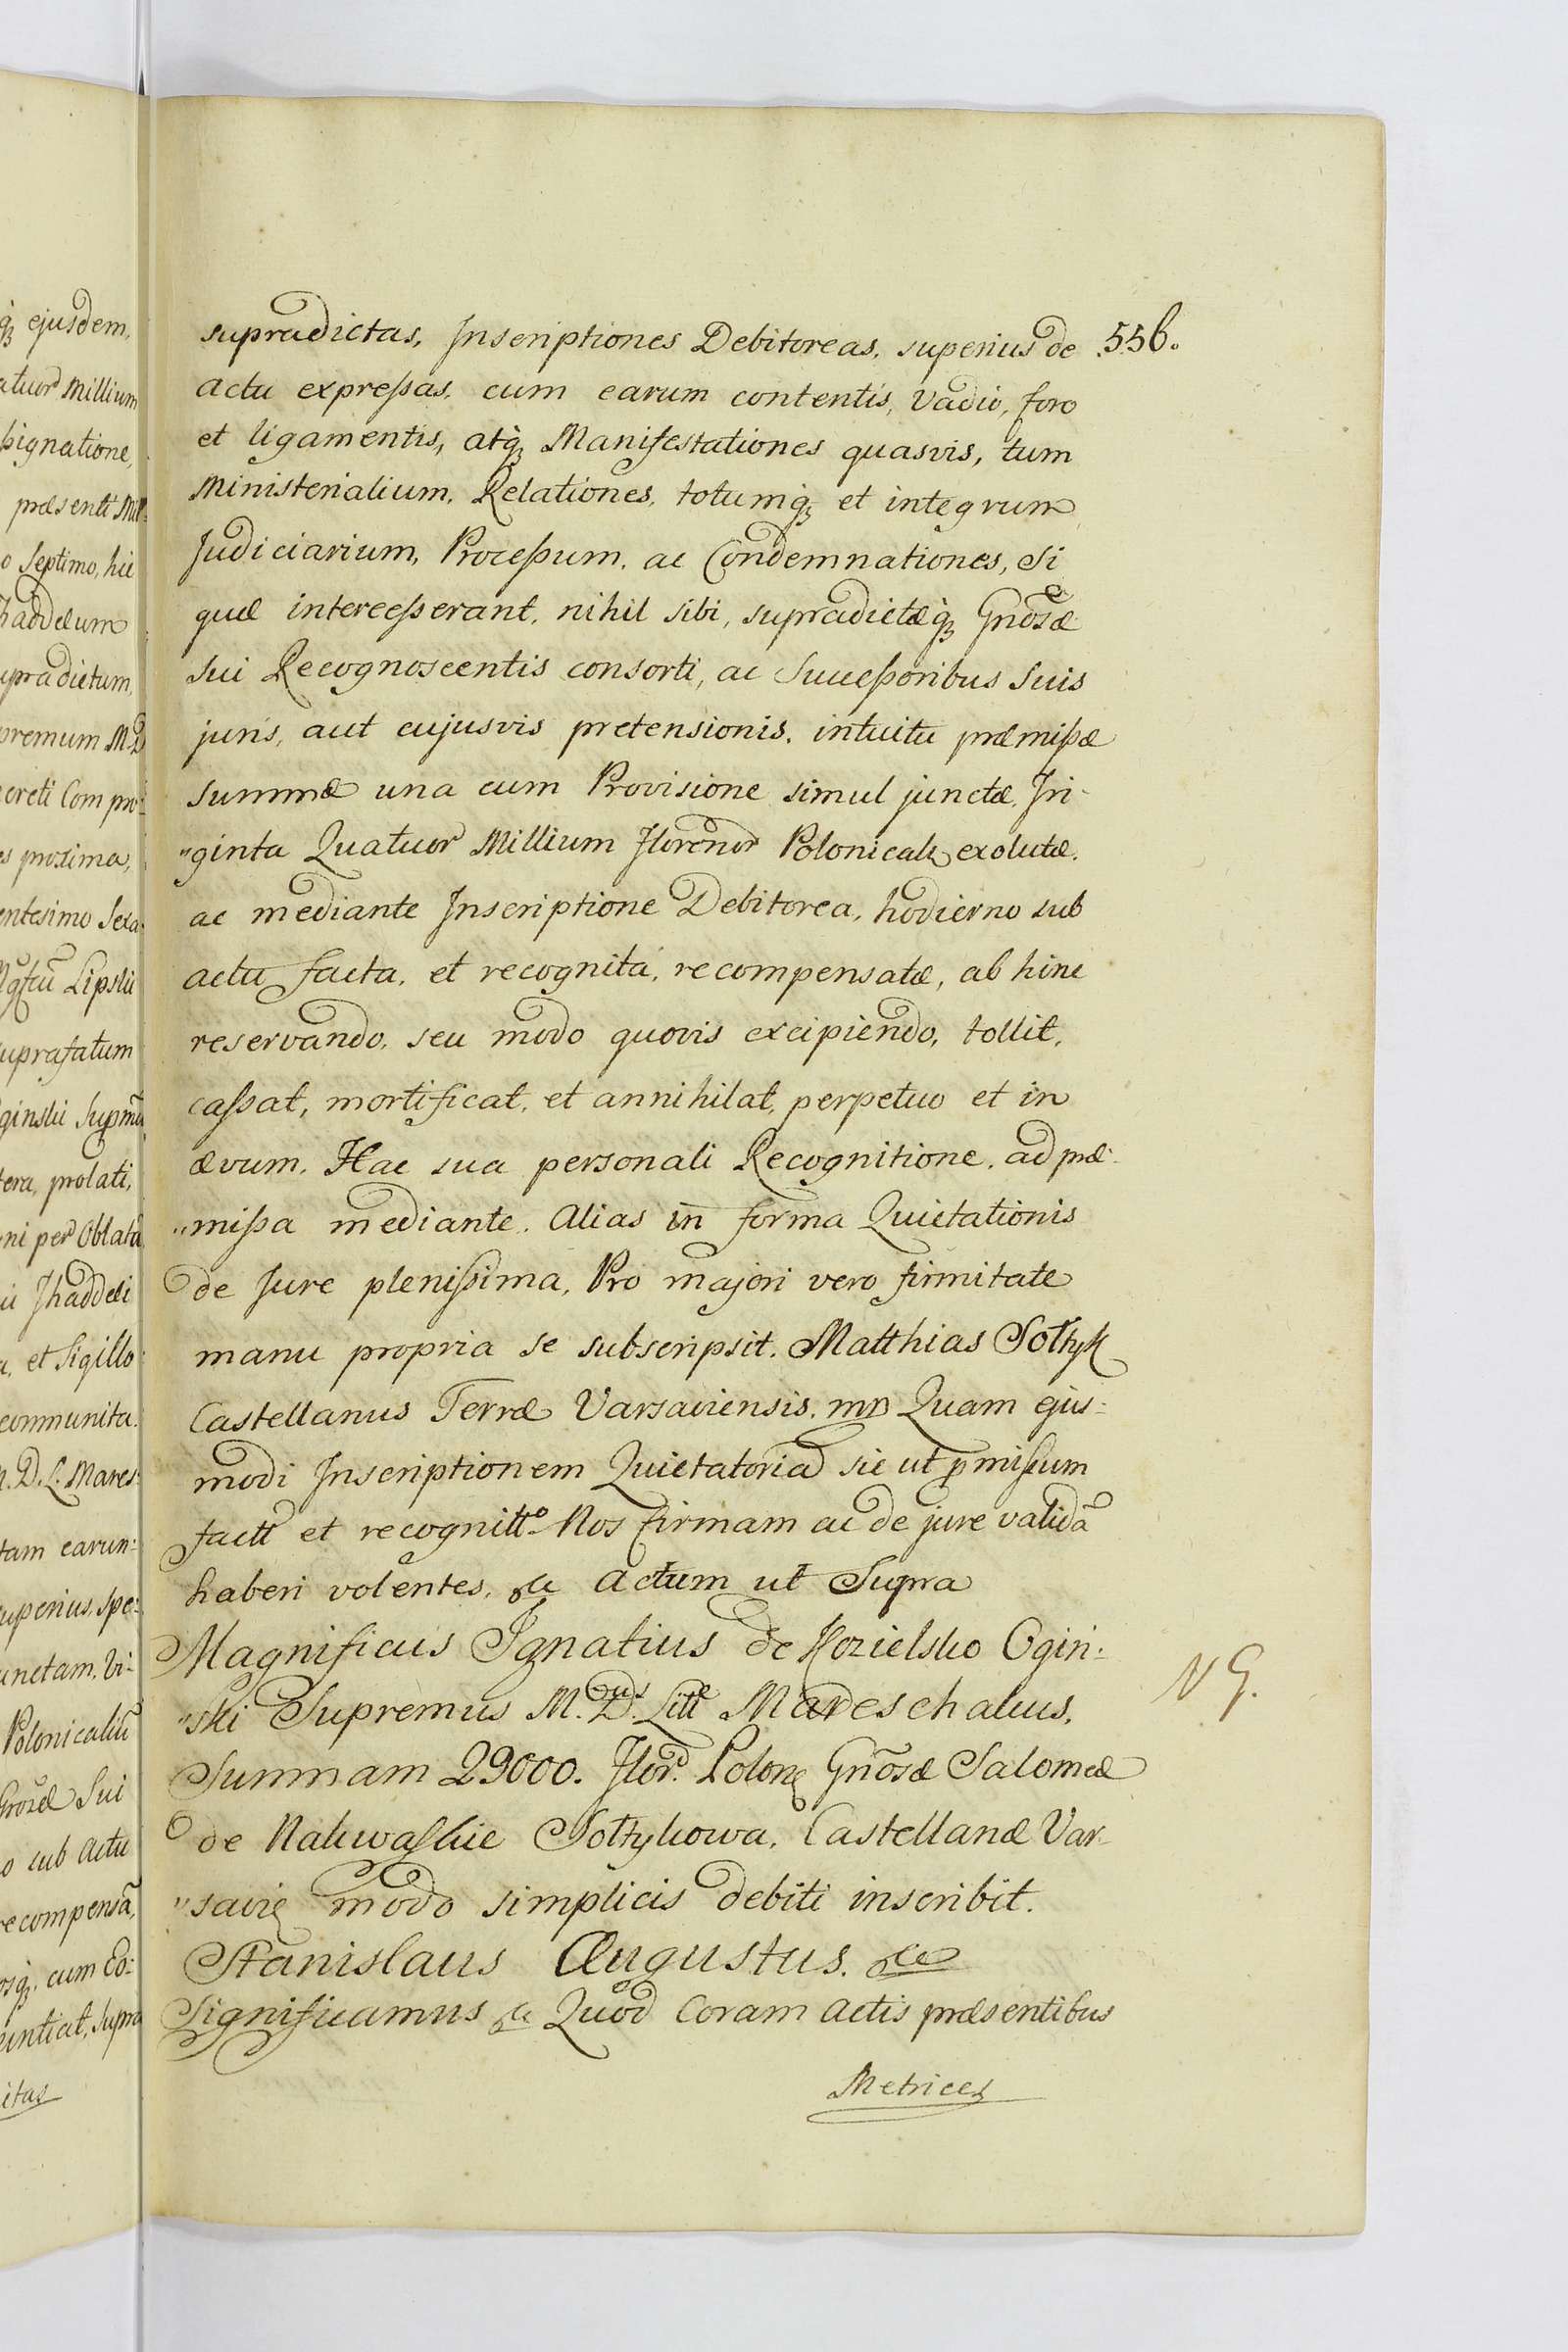 supradictas, Inscriptiones Debitoreas, superius de 556.
actu expressas, cum earum contentis, Vadio, foro
et ligamentis, atq3 Manifestationes quasvis, tum
Ministerialium, Relationes, totumq3 et integrum
Judiciarium, Processum, ac Condemnationes, Si
quæ intercesserant, nihil sibi, supradictæq3 Gnosæ
sui Recognoscentis consorti, ac Successoribus Suis
juris, aut cujusvis pretensionis, intuitu præmissæ
summæ una cum Provisione simul junctæ, Tri-
"ginta Quatuor Millium Florenor Polonicalium exolutæ,
ac mediante Inscriptione Debitorea, hodierno sub
actu facta, et recognita, recompensatæ, ab hinc
reservando, seu modo quovis excipiendo, tollit,
cassat, mortificat, et annihilat, perpetuo et in
ævum, Hac sua personali Recognitione, ad præ-
"missa mediante. Alias in forma Quietationis
de Jure plenissima, Pro majori vero firmitate
manu propria se subscripsit. Matthias Sołtyk
Castellanus Terræ Varsaviensis. mp Quam ejus:
modi Inscriptionem Quietatoriã sic ut pmissum
factã et recognitã Nos firmam ac de jure validã
haberi volentes, &c Actum ut Supra
Magnificus Ignatius de Kozielsko Ogin:
"ski Supremus M. Dus Litt Mareschalcus, NG.
Summam 29000. Flor. Polonę Gnõsæ Salomeæ
de Nakwaskie Sołtykowa, Castellanæ Var-
"savię modo simplicis debiti inscribit.
Stanislaus Augustus. &c
Significamus &c Quod Coram Actis præsentibus
Metrices
q3 ejusdem,
atuor Millium
signatione,
præsenti Mill:
o Septimo, hic
haddæum
upradictum,
premum M.D
creti Compro:
es proxima,
entesimo Sexa:
Lipslii
uprafatum
ginslii Supmũ
tera, prolati,
ni per Oblatã
ii Thaddæi
a, et Sigillo
communita.
M. D. L. Mares:
tam earun:
uperius, spe:
unctam, Vi:
Polonicaliũ
Gnosæ Sui
o sub actu
recompensã,
osq3, cum Eo:
untiat, supra
itas